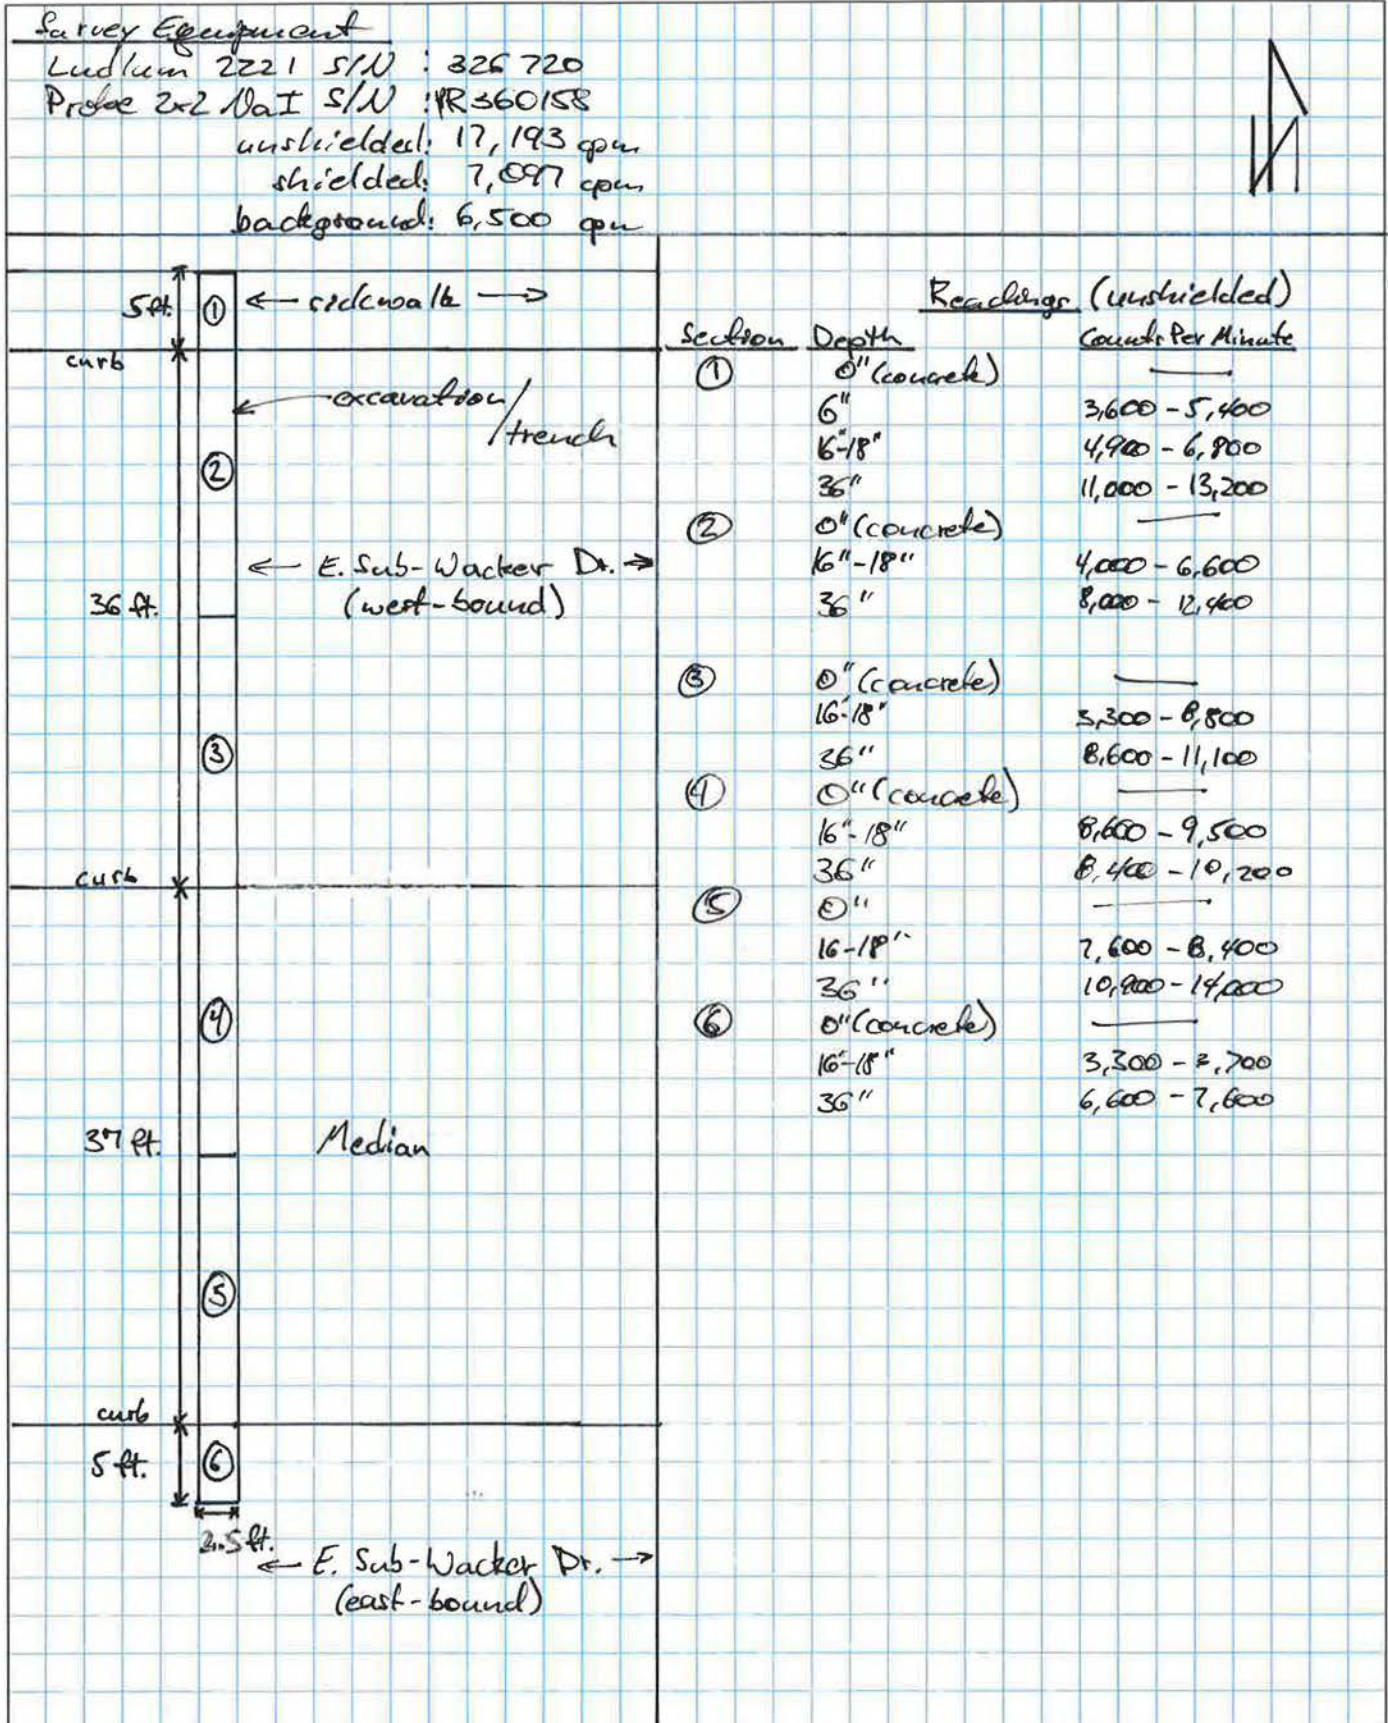 Survey Equipment
Ludlum 2221 S/N : 326720
Probe 2x2 NaI S/N : PR360158
unshielded: 17,193 cpm
shielded: 7,097 cpm
background: 6,500 cpm
N
5ft. ① ← sidewalk →
curb
excavation/
trench
②
← E. Sub-Wacker Dr. →
36 ft. (west-bound)
③
curb
④
37 ft. Median
⑤
curb
5 ft. ⑥
2.5 ft.
← E. Sub-Wacker Dr. →
(east-bound)
Readings (unshielded)
Section Depth Counts Per Minute
① 0" (concrete) —
6" 3,600 - 5,400
16"-18" 4,900 - 6,800
36" 11,000 - 13,200
② 0" (concrete) —
16"-18" 4,000 - 6,600
36" 8,000 - 12,400
③ 0" (concrete) —
16-18" - 6,800
36" 8,600 - 11,100
④ 0" (concrete) —
16"-18" 8,600 - 9,500
36" 8,400 - 10,200
⑤ 0" —
16-18" 7,600 - 8,400
36" 10,900 - 14,000
⑥ 0" (concrete) —
16"-18" 3,300 - 3,700
36" 6,600 - 7,600